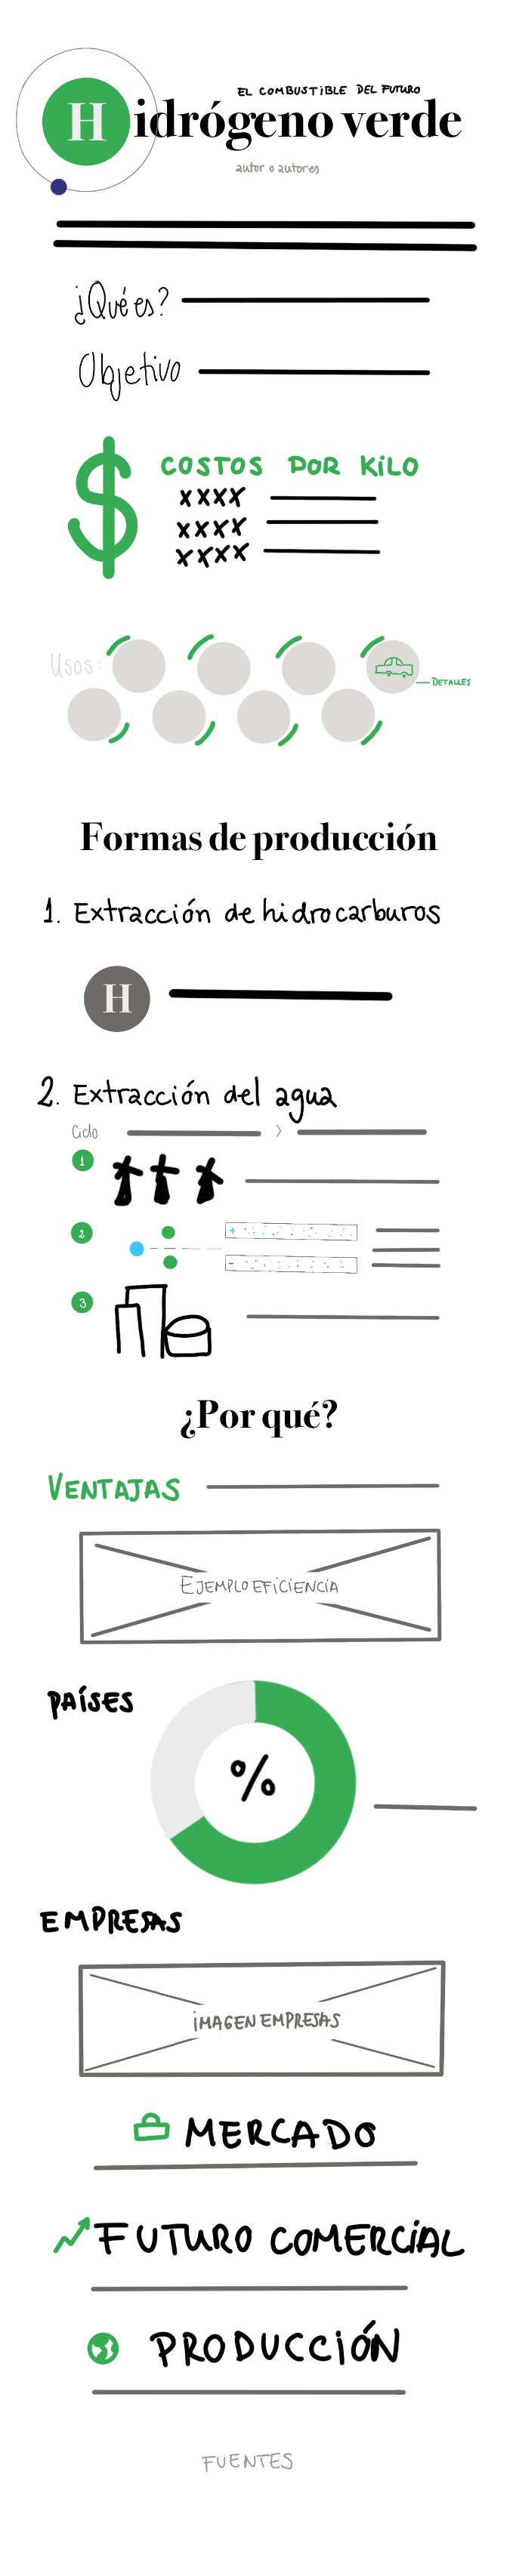 EL COMBUSTIBLE DEL FUTURO
Hidrógeno verde
autor o autores
¿Qué es?
Objetivo
$
COSTOS POR KILO
XXXX
XXXX
XXXX
Usos:
DETALLES
Formas de producción
1. Extracción de hidrocarburos
H
2. Extracción del agua
Ciclo >
1
2
+
-
3
¿Por qué?
VENTAJAS
EJEMPLO EFICIENCIA
PAÍSES
%
EMPRESAS
IMAGEN EMPRESAS
MERCADO
FUTURO COMERCIAL
PRODUCCIÓN
FUENTES